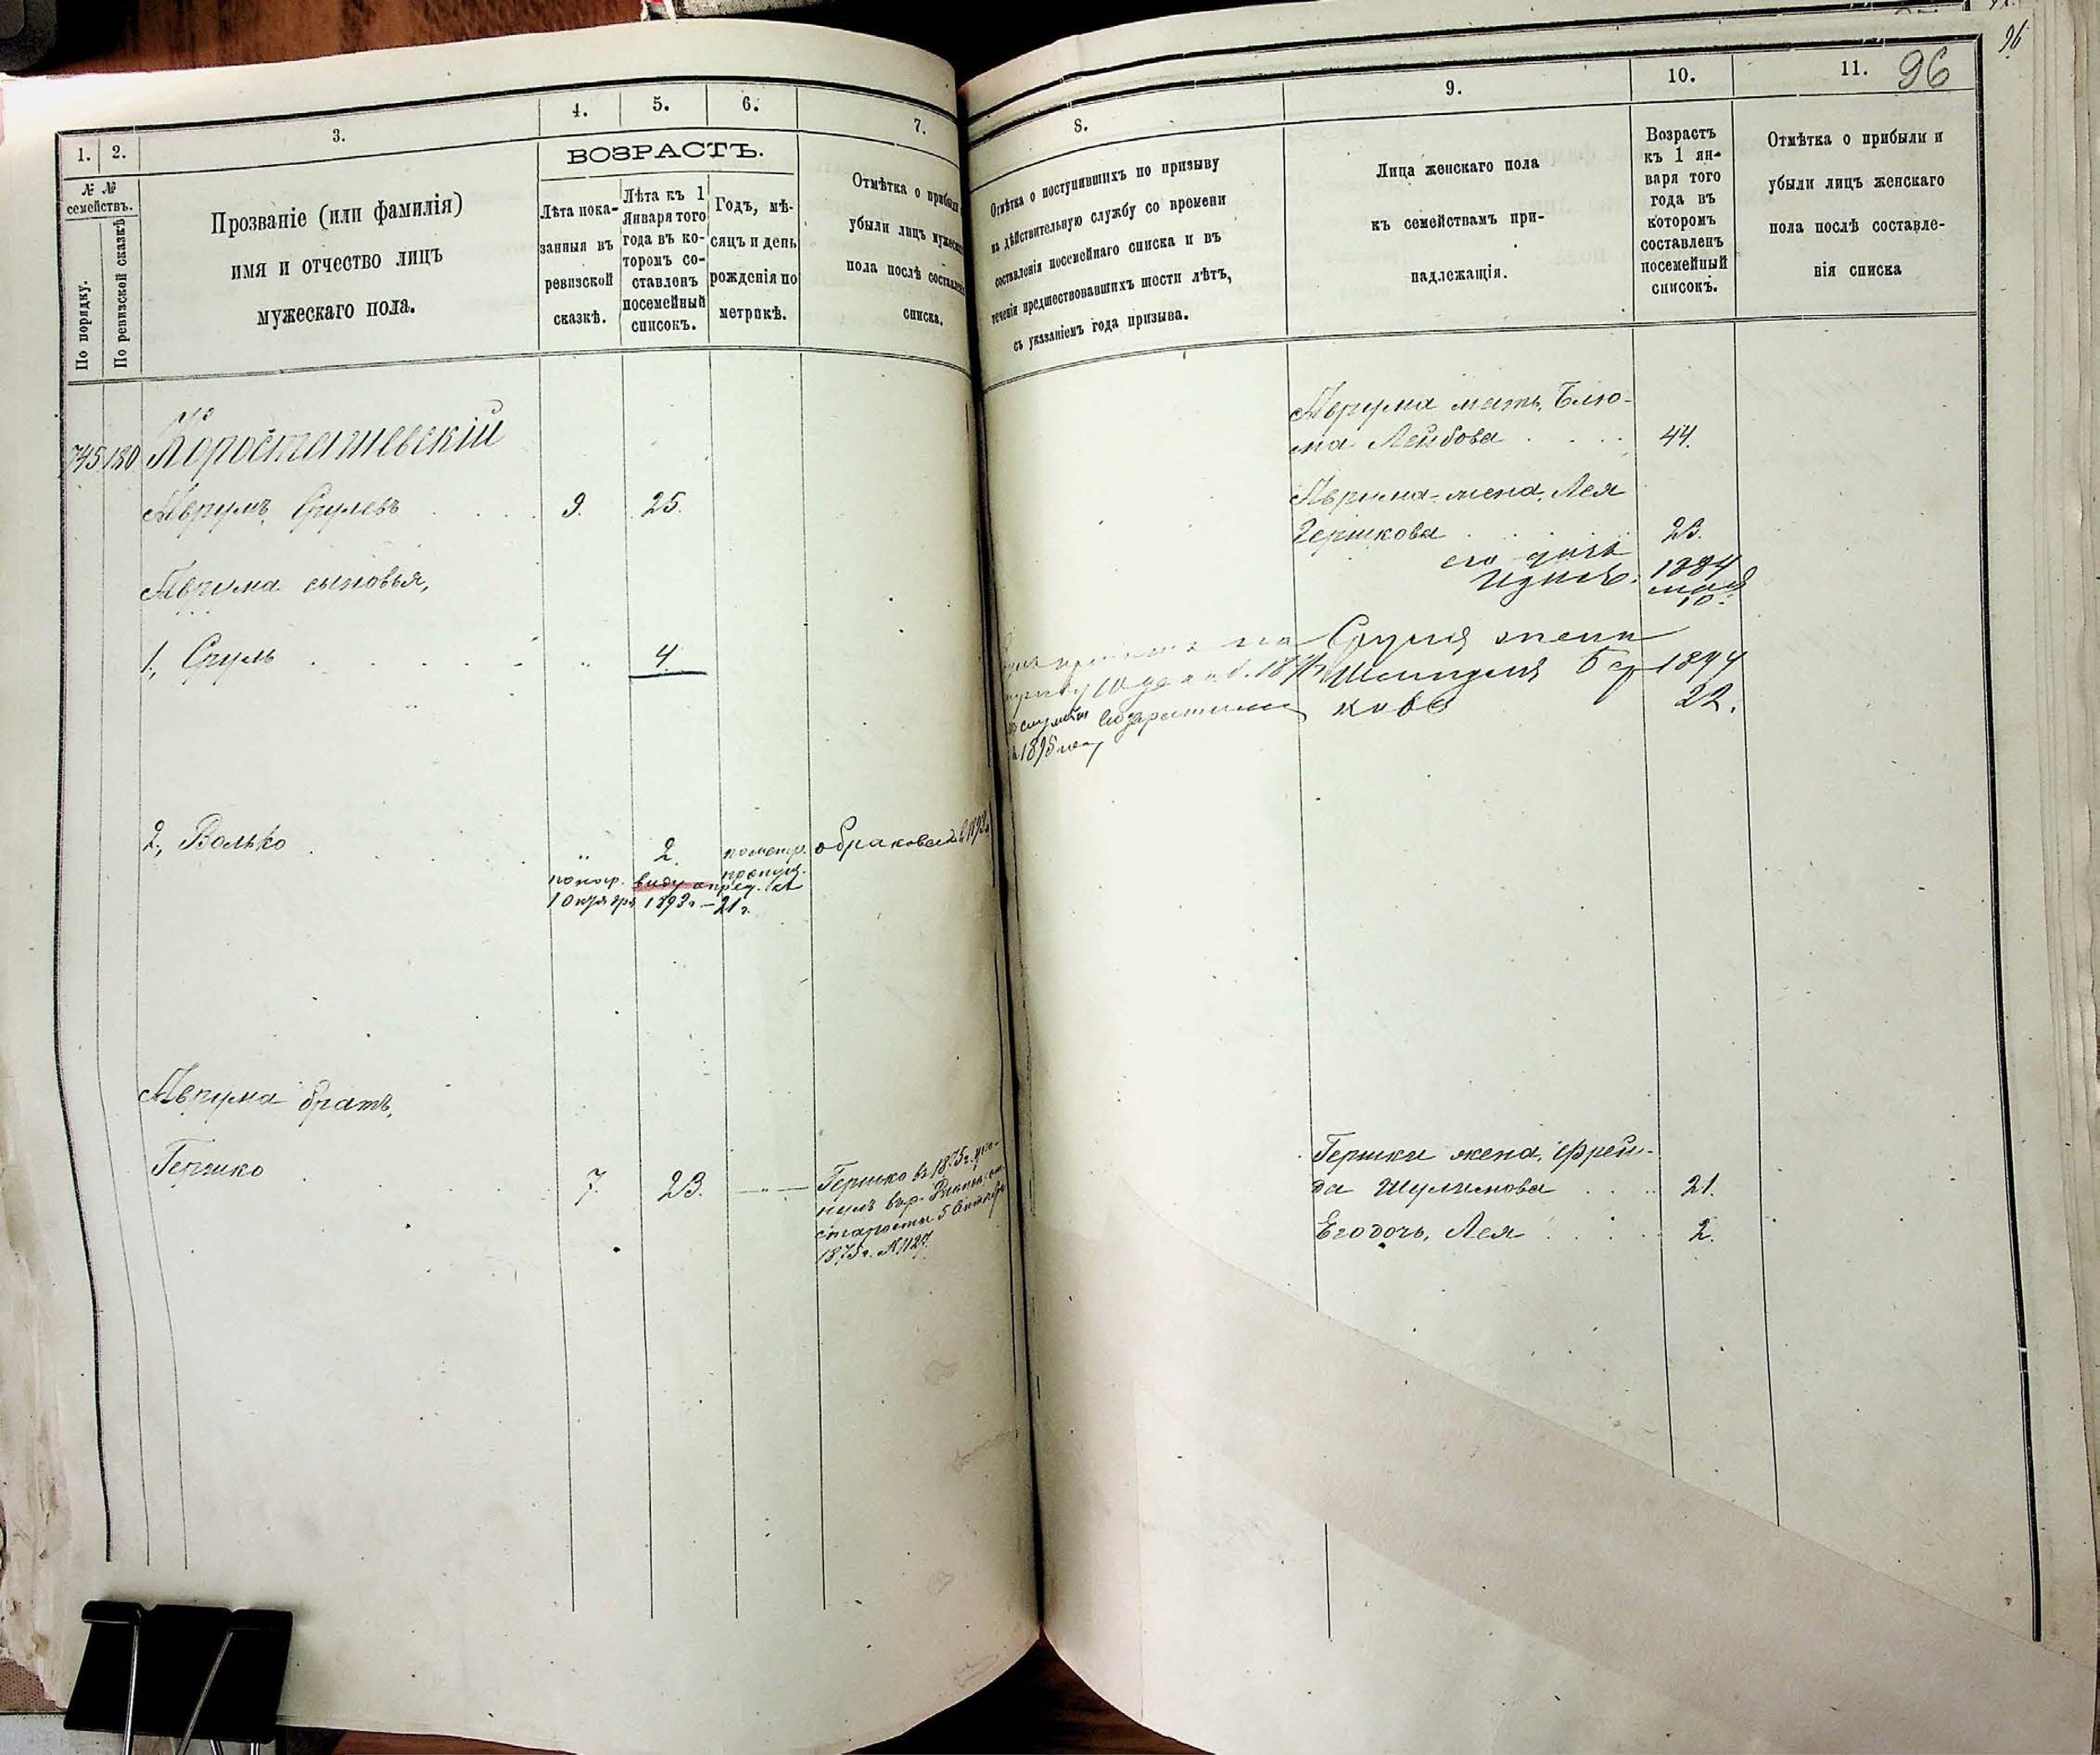 1.
2.
3.
4.
5.
6.
7.
№ №
семействъ.
По порядку.
По ревизской сказкѣ
Прозваніе (или фамилія)
имя и отчество лицъ
мужескаго пола.
ВОЗРАСТЪ.
Лѣта пока-
занныя въ
ревизской
сказкѣ.
Лѣта къ 1
Января того
года въ ко-
торомъ со-
ставленъ
посемейный
списокъ.
Годъ, мѣ-
сяцъ и день
рожденія по
метрикѣ.
Отмѣтка о прибыли
убыли лицъ мужеска
пола послѣ составлен
списка.
745 180 Коростышевскій
Аврумъ Срулевъ 9. 25.
Аврума сыновья,
1, Сруль „ 4
2, Волько „ 2. пометр.
пропущ.
обракованъ
по нар. виду опред. къ
1 Октября 1892 г. – 21 г.
Аврума братъ,
Гершко 7. 23. — „ —
Гершко въ 1875 г.
старосты 5 Октября
1875 г. № 1127.
8.
9.
10.
11.
96
96
Отмѣтка о поступившихъ по призыву
на дѣйствительную службу со времени
составленія посемейнаго списка и въ
теченіи предшествовавшихъ шести лѣтъ,
съ указаніемъ года призыва.
Лица женскаго пола
къ семействамъ при-
надлежащія.
Возрастъ
къ 1 ян-
варя того
года въ
которомъ
составленъ
посемейный
списокъ.
Отмѣтка о прибыли и
убыли лицъ женскаго
пола послѣ составле-
нія списка
Аврума мать, Блю-
ма Лейбова 44.
Аврума жена, Лея
Гершкова 23.
его дочь 1884
10.
Сруля жена
Шейндля Бер 1894
кова 22.
Гершки жена, Фрей-
да Шулимова 21.
Его дочь, Лея 2.